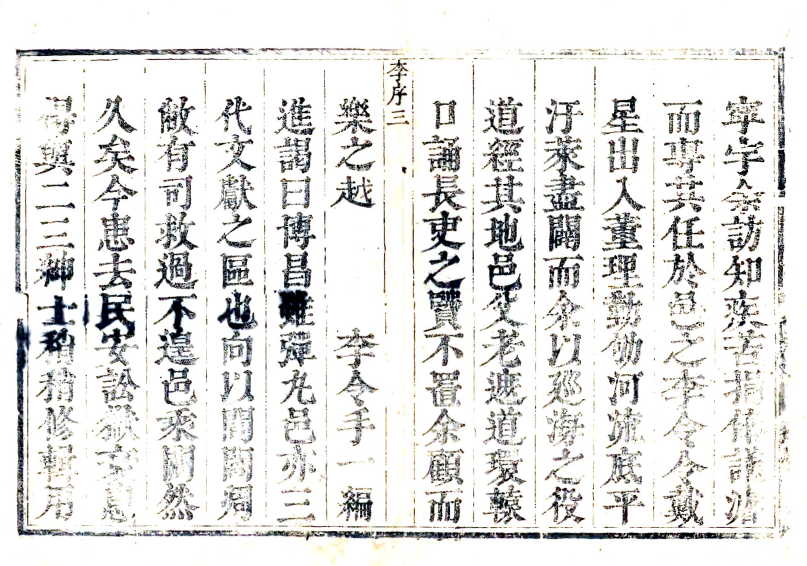 寧宇余訪知疾苦捐俸議濬
而專其任於邑之李令令戴
星出入董理勤劬河流底平
汙萊盡闢而余以廵海之役
道經其地邑父老遮道環轅
口誦長吏之賢不置余顧而
李序三
樂之越　　李令手一編
進謁曰博昌雖彈丸邑亦三
代文獻之區也向以閭閻凋
敝有司救過不遑邑乘闕然
久矣今患去民安訟獄衰息
得與二三紳士稍稍修輯用